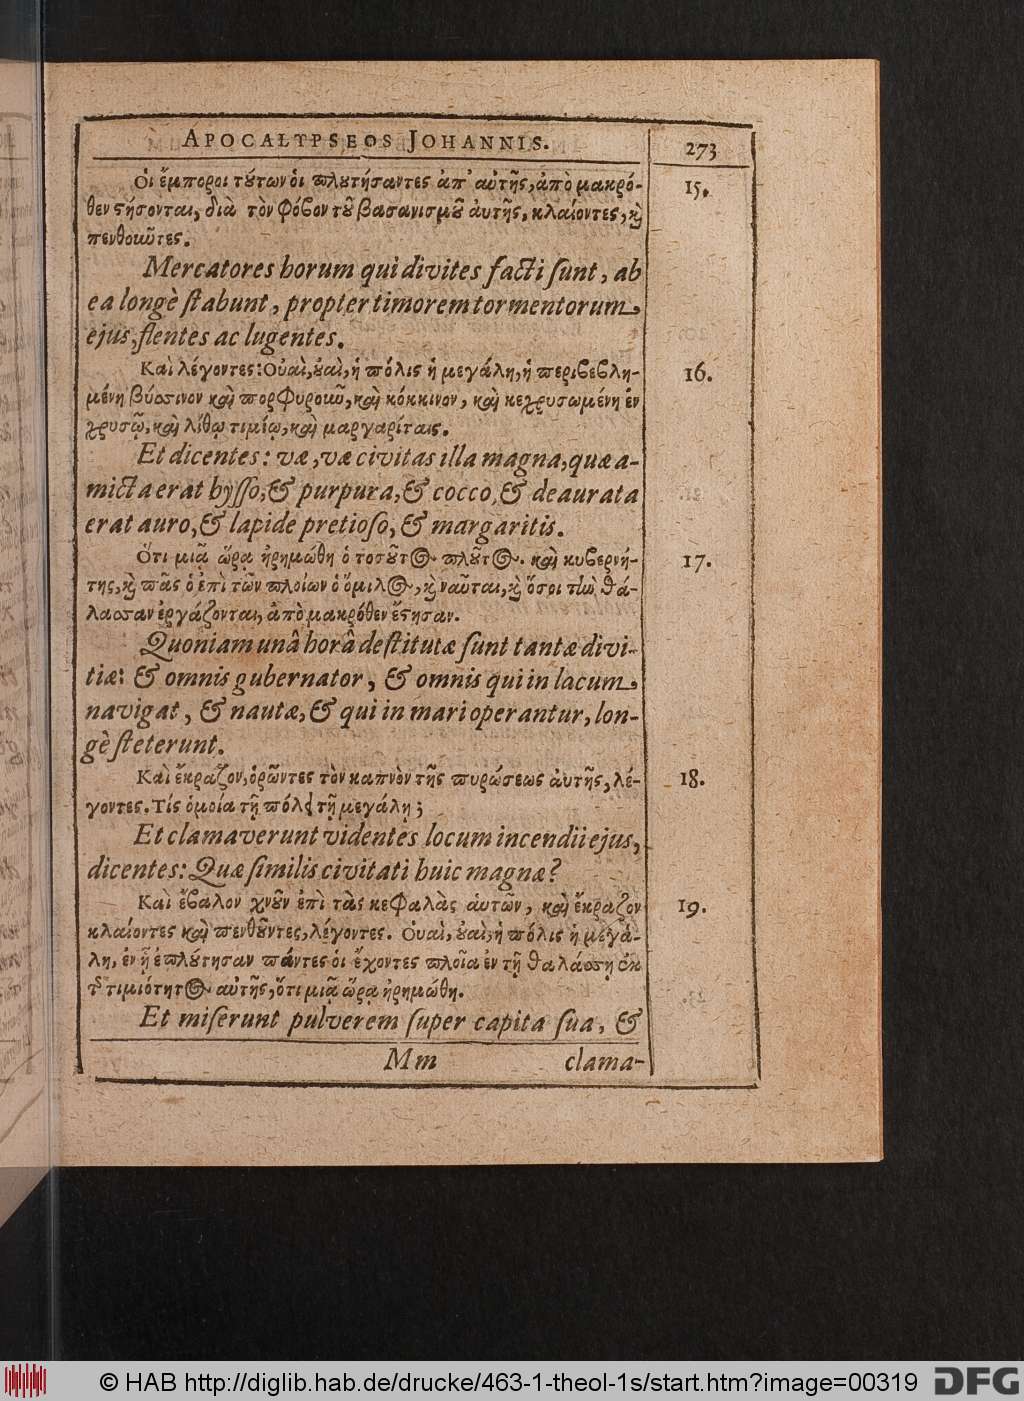 APOCALYPSEOS JOHANNIS.
273
Οἱ ἔμποροι τȣ́των οἱ πλȣτήσαντες ἀπ' αὐτῆς, ἀπὸ μακρό-
15.
θεν ϛήσονται, διὰ τὸν φόβον τȣ͂ βασανισμȣ͂ ἀυτῆς, κλαίοντες, ϗ
πενθοιῶτες.
Mercatores horum qui divites facti ſunt, ab
ea longè ſtabunt, propter timorem tormentorum,
ejus, flentes ac lugentes.
Καὶ λέγοντες: Οὐαὶ, ȣ̓αὶ, ἡ πόλις ἡ μεγάλη, ἡ περιβεβλη-
16.
μένη βύσσινον καὶ πορφυροιῶ, καὶ κόκκινον, καὶ κεχρυσωμένη ἐν
χρυσῷ, καὶ λίθῳ τιμίῳ, καὶ μαργαρίταις.
Et dicentes: væ, væ civitas illa magna, quæ a-
micta erat byſſo, & purpura, & cocco, & deaurata
erat auro, & lapide pretioſo, & margaritis.
Ὅτι μιᾷ ὥρᾳ ἠρημώθη ὁ τοσȣ͂τος πλȣ͂τος. καὶ κυβερνή-
17.
της, ϗ πᾶς ὁ ἐπὶ τῶν πλοίων ὁ ὅμιλος, ϗ ναῦται, ϗ ὅσοι τίω θά-
λασσαν ἐργάζονται, ἀπὸ μακρόθεν ἔϛησαν.
Quoniam unâ horâ deſtitutæ ſunt tantæ divi-
tiæ: & omnis gubernator, & omnis qui in lacum,
navigat, & nautæ, & qui in mari operantur, lon-
gè ſteterunt.
Καὶ ἔκραζον, ὁρῶντες τὸν καπνὸν τῆς πυρώσεως ἀυτῆς, λέ-
18.
γοντες. Τίς ὁμοία τῇ πόλει τῇ μεγάλῃ;
Et clamaverunt videntes locum incendii ejus,
dicentes: Quæ ſimilis civitati huic magnæ?
Καὶ ἔβαλον χνȣ͂ν ἐπὶ τὰς κεφαλὰς ἁυτῶν, καὶ ἔκραζον
19.
κλαίοντες καὶ πενθȣ͂ντες, λέγοντες. Ὀυαὶ, ȣ̓αὶ, ἡ πόλις ἡ μεγά-
λη, ἐν ᾗ ἐπλȣ́τησαν πάντες ὁι ἔχοντες πλοῖα ἐν τῇ θαλάσσῃ ἐκ
τ͂ τιμιότητος αὐτῆς, ὅτι μιᾷ ὥρᾳ ἠρημώθη.
Et miſerunt pulverem ſuper capita ſua, &
Mm
clama-
© HAB http://diglib.hab.de/drucke/463-1-theol-1s/start.htm?image=00319
DFG